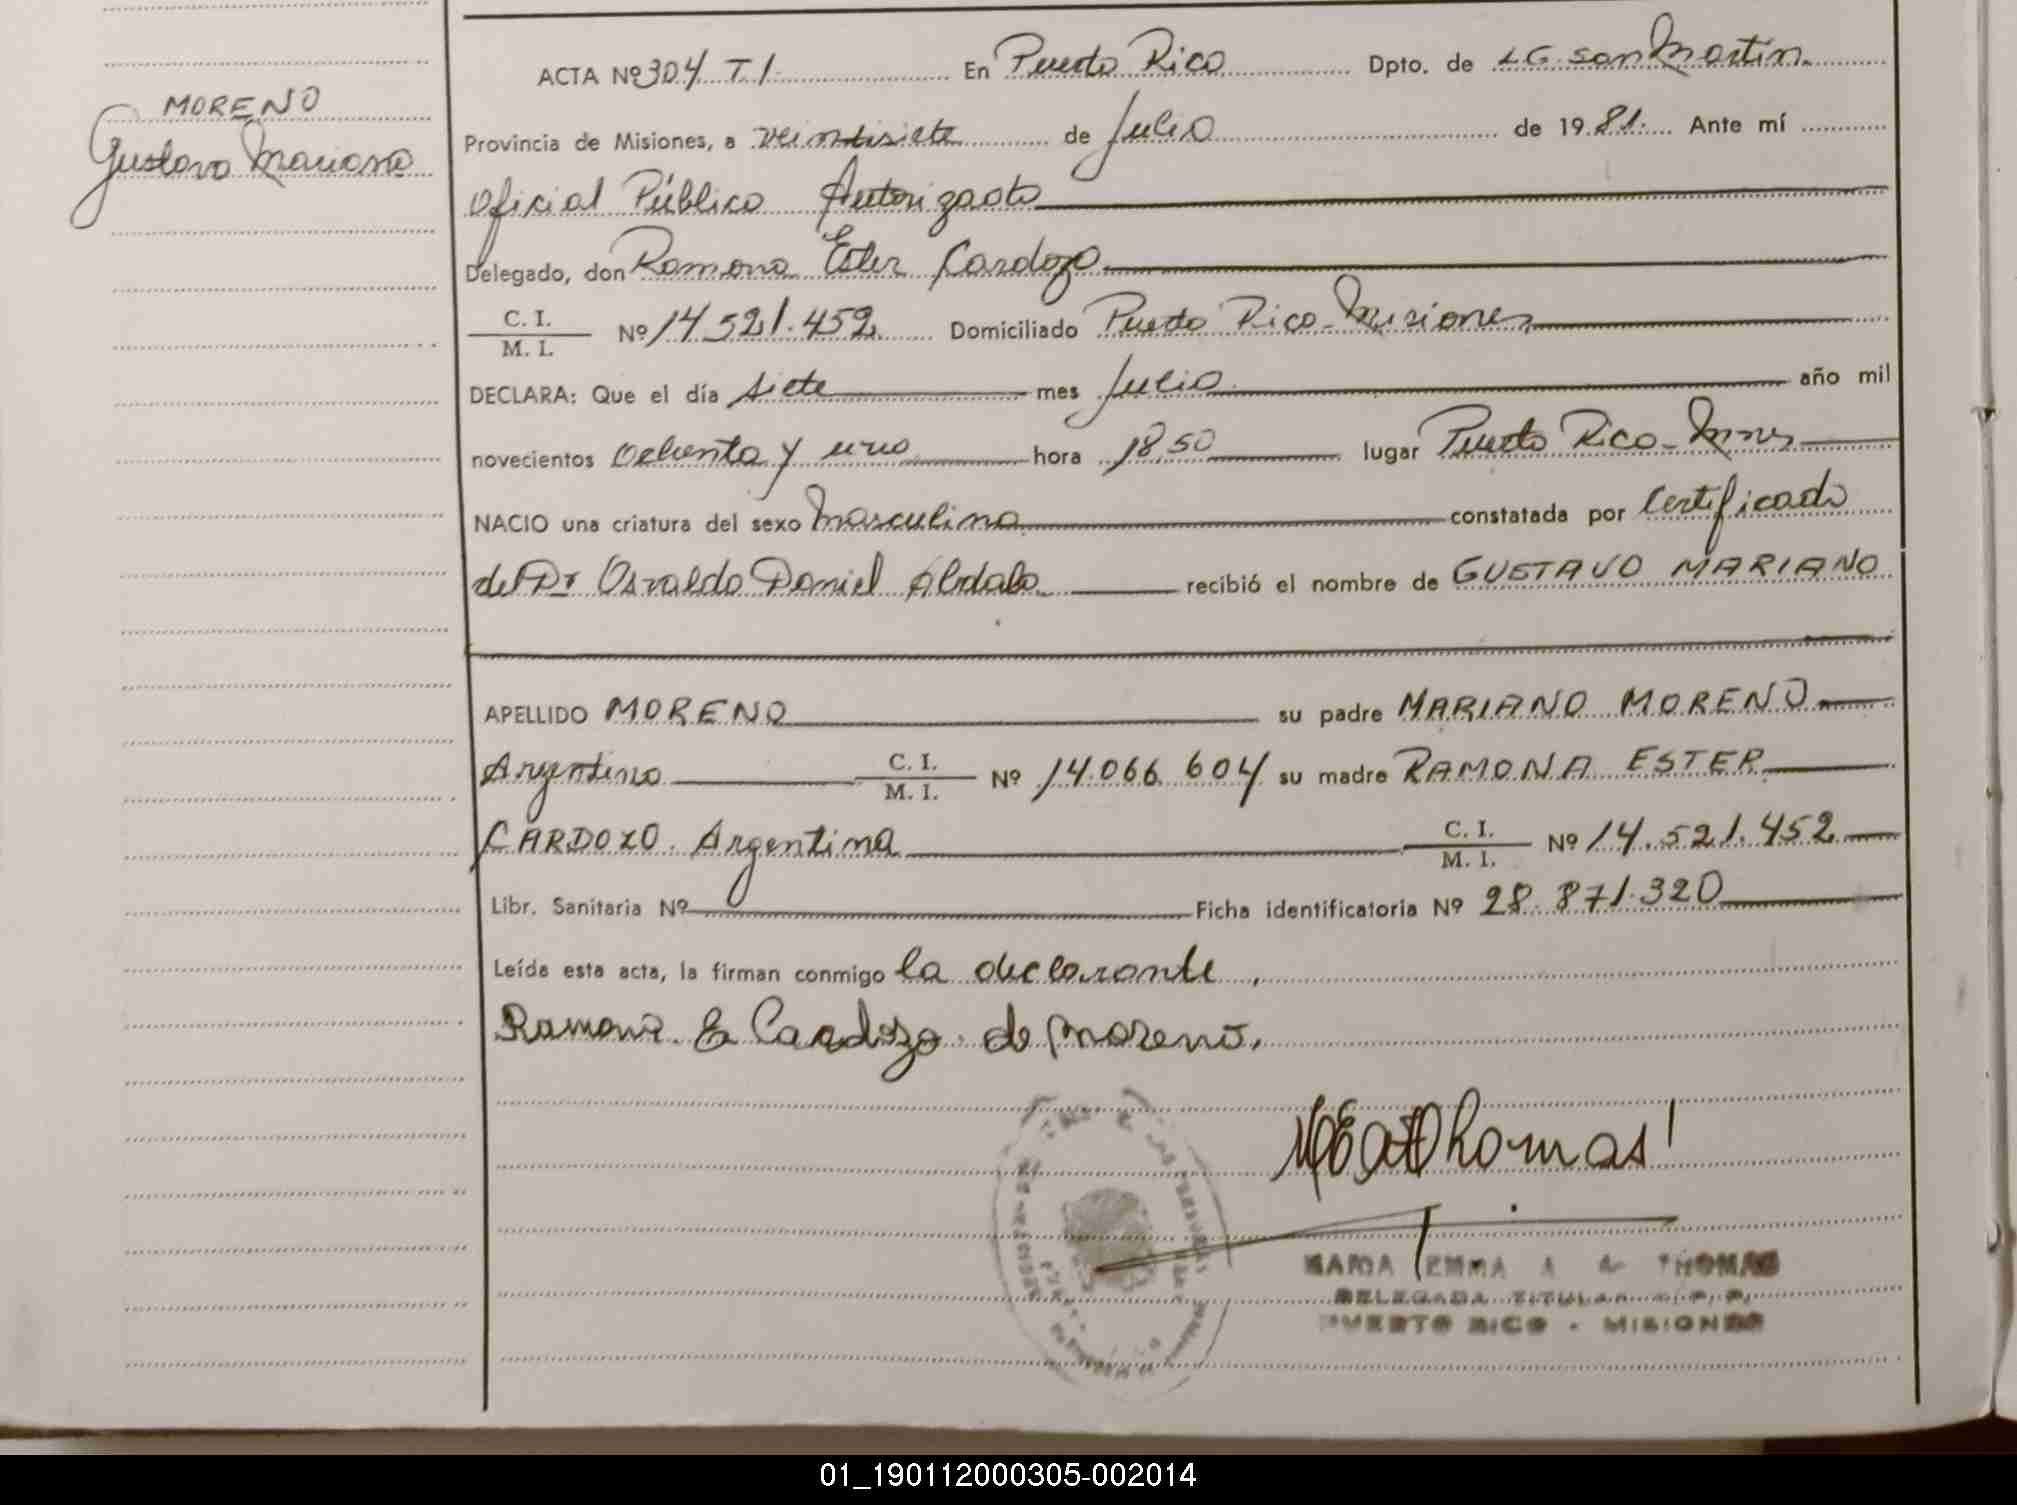 MORENO
Gustavo Mariano
ACTA Nº 304 T I En Puerto Rico Dpto. de LG San Martin
Provincia de Misiones, a veintisiete de Julio de 1981. Ante mí
Oficial Público Autorizado
Delegado, don Ramona Ester Cardozo
C. I.
M. I. Nº 14.521.452 Domiciliado Puerto Rico-Misiones
DECLARA: Que el día siete mes Julio año mil
novecientos ochenta y uno hora 18,50 lugar Puerto Rico-Mnes
NACIO una criatura del sexo Masculino constatada por Certificado
del Dr Osvaldo Daniel Abdala recibió el nombre de GUSTAVO MARIANO
APELLIDO MORENO su padre MARIANO MORENO
Argentino C. I.
M. I. Nº 14.066.604 su madre RAMONA ESTER
CARDOZO. Argentina C. I.
M. I. Nº 14.521.452
Libr. Sanitaria Nº Ficha identificatoria Nº 28.871.320
Leída esta acta, la firman conmigo la declarante,
Ramona E Cardozo de Moreno.
Thomas
MARIA EMMA A de THOMAS
DELEGADA TITULAR
PUERTO RICO - MISIONES
01_190112000305-002014